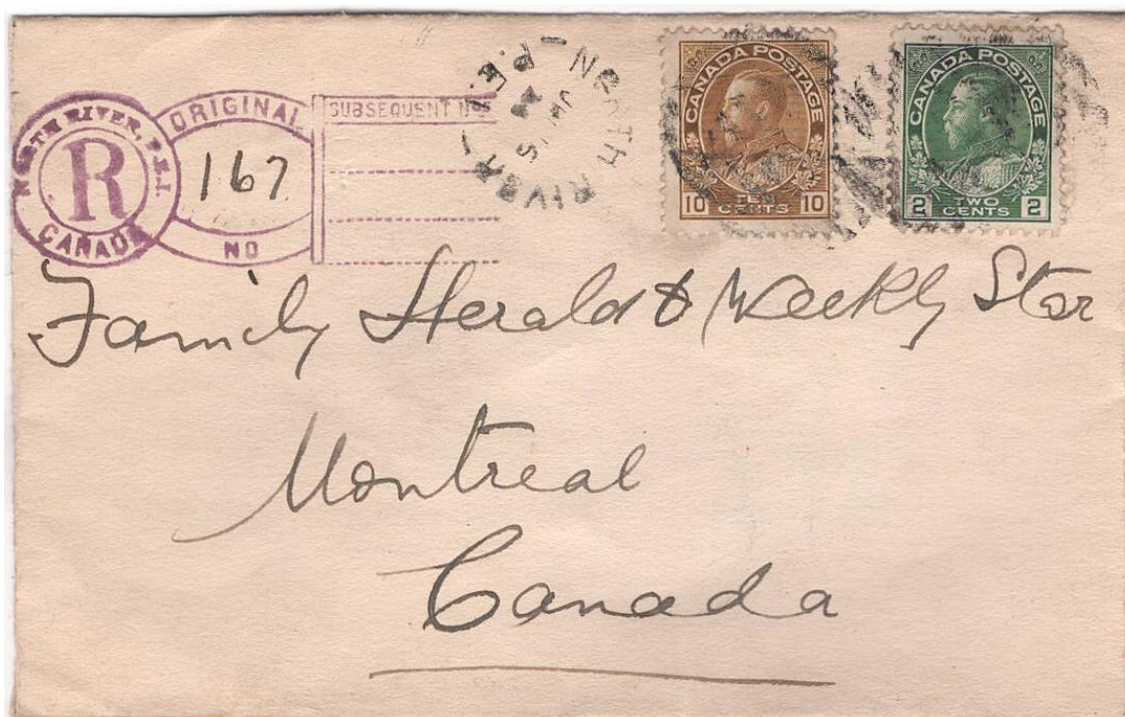 NORTH RIVER, P.E.I.
R
CANADA
ORIGINAL
167
NO
SUBSEQUENT NOS
NORTH RIVER
P.E.
CANADA POSTAGE
10 TEN CENTS 10
CANADA POSTAGE
2 TWO CENTS 2
Family Herald & Weekly Star
Montreal
Canada